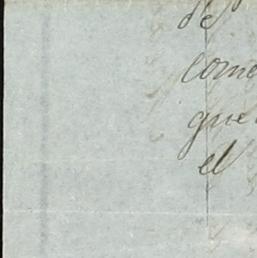 de
come
que
el